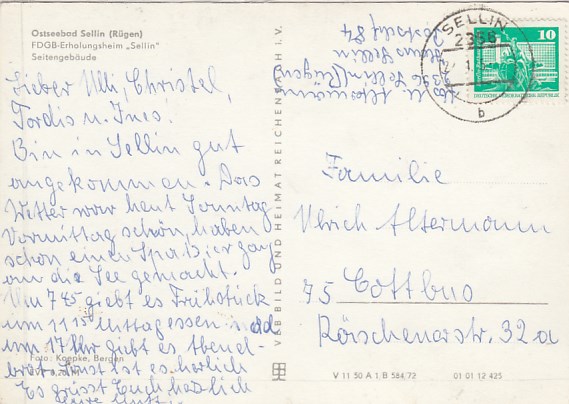 Ostseebad Sellin (Rügen)
FDGB-Erholungsheim „Sellin"
Seitengebäude
Lieber Ulli, Christel,
Tordis u. Ines!
Bin in Sellin gut
angekommen. Das
Wetter war heut Sonntag
Vormittag schön, haben
schon einen Spaziergang
an die See gemacht.
Um 7 45 giebt es Frühstück
um 11 15 Mittagessen und
um 17 Uhr giebt es Abend-
brot. Sonst ist es herlich
Es grüsst Euch herzlich
Eure Mutti
Foto: Koepke, Bergen
VEB BILD UND HEIMAT REICHENBACH I. V.
Abs. Altermann
2356 Sellin (Rügen)
Haus Sellin
Postfach 84
SELLIN
2356
b
10
DEUTSCHE DEMOKRATISCHE REPUBLIK
Familie
Ulrich Altermann
75 Cottbus
Röschenerstr. 32a
V 11 50 A 1, B 584/72 01 01 12 425